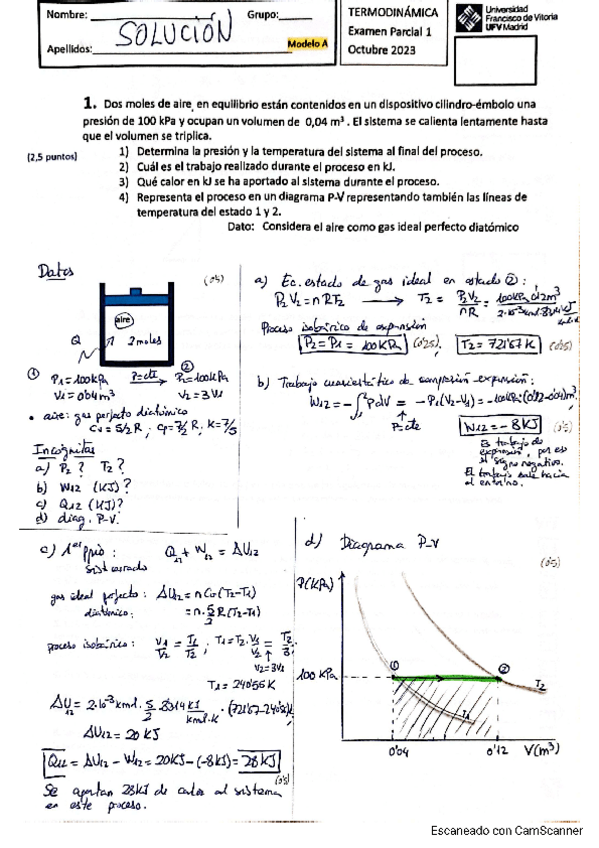 Nombre: Grupo:
SOLUCIÓN
Apellidos: Modelo A
TERMODINÁMICA
Examen Parcial 1
Octubre 2023
Universidad
Francisco de Vitoria
UFV Madrid
1. Dos moles de aire, en equilibrio están contenidos en un dispositivo cilindro-émbolo una
presión de 100 kPa y ocupan un volumen de 0,04 m³. El sistema se calienta lentamente hasta
que el volumen se triplica.
(2,5 puntos)
1) Determina la presión y la temperatura del sistema al final del proceso.
2) Cuál es el trabajo realizado durante el proceso en kJ.
3) Qué calor en kJ se ha aportado al sistema durante el proceso.
4) Representa el proceso en un diagrama P-V representando también las líneas de
temperatura del estado 1 y 2.
Dato: Considera el aire como gas ideal perfecto diatómico
Datos
(0'5)
aire
Q 2 moles
① P1=100kPa P=cte P2=100kPa ②
V1=0'04m³ V2=3V1
• aire: gas perfecto diatómico
Cv=5/2R; Cp=7/2R, K=7/5
Incógnitas
a) P2? T2?
b) W12 (KJ)?
c) Q12 (KJ)?
d) diag. P-V.
a) Ec. estado de gas ideal en estado ②:
P2V2=nRT2 → T2 = P2V2/nR = 100kPa 0'12m³/2·10⁻³kmol·8'314 KJ/kmol·K
Proceso isobárico de expansión
P2=P1=100KPa (0'25) T2=721'67K (0'5)
b) Trabajo cuasiestático de compresión expansión:
W12=-∫₁²PdV = -P1(V2-V1)=-100kPa(0'12-0'04)m³
P=cte
W12=-8KJ (0'5)
Es trabajo de
expansión, por eso
el signo negativo.
El trabajo sale hacia
el entorno.
c) 1er ppio: Q12+W12=ΔU12
sist cerrado
gas ideal perfecto: ΔU12=nCv(T2-T1)
diatómico: =n·5/2R(T2-T1)
proceso isobárico: V1/V2=T1/T2; T1=T2·V1/V2=T2/3
V2=3V1
T1=240'56K
ΔU12=2·10⁻³kmol·5/2·8'314KJ/kmol·K·(721'67-240'56)K
ΔU12=20KJ
Q12=ΔU12-W12=20KJ-(-8KJ)=28KJ
(0'5)
Se aportan 28KJ de calor al sistema
en este proceso.
d) Diagrama P-V
(0'5)
P(KPa)
① ②
100 KPa
T2
T1
0'04 0'12 V(m³)
Escaneado con CamScanner